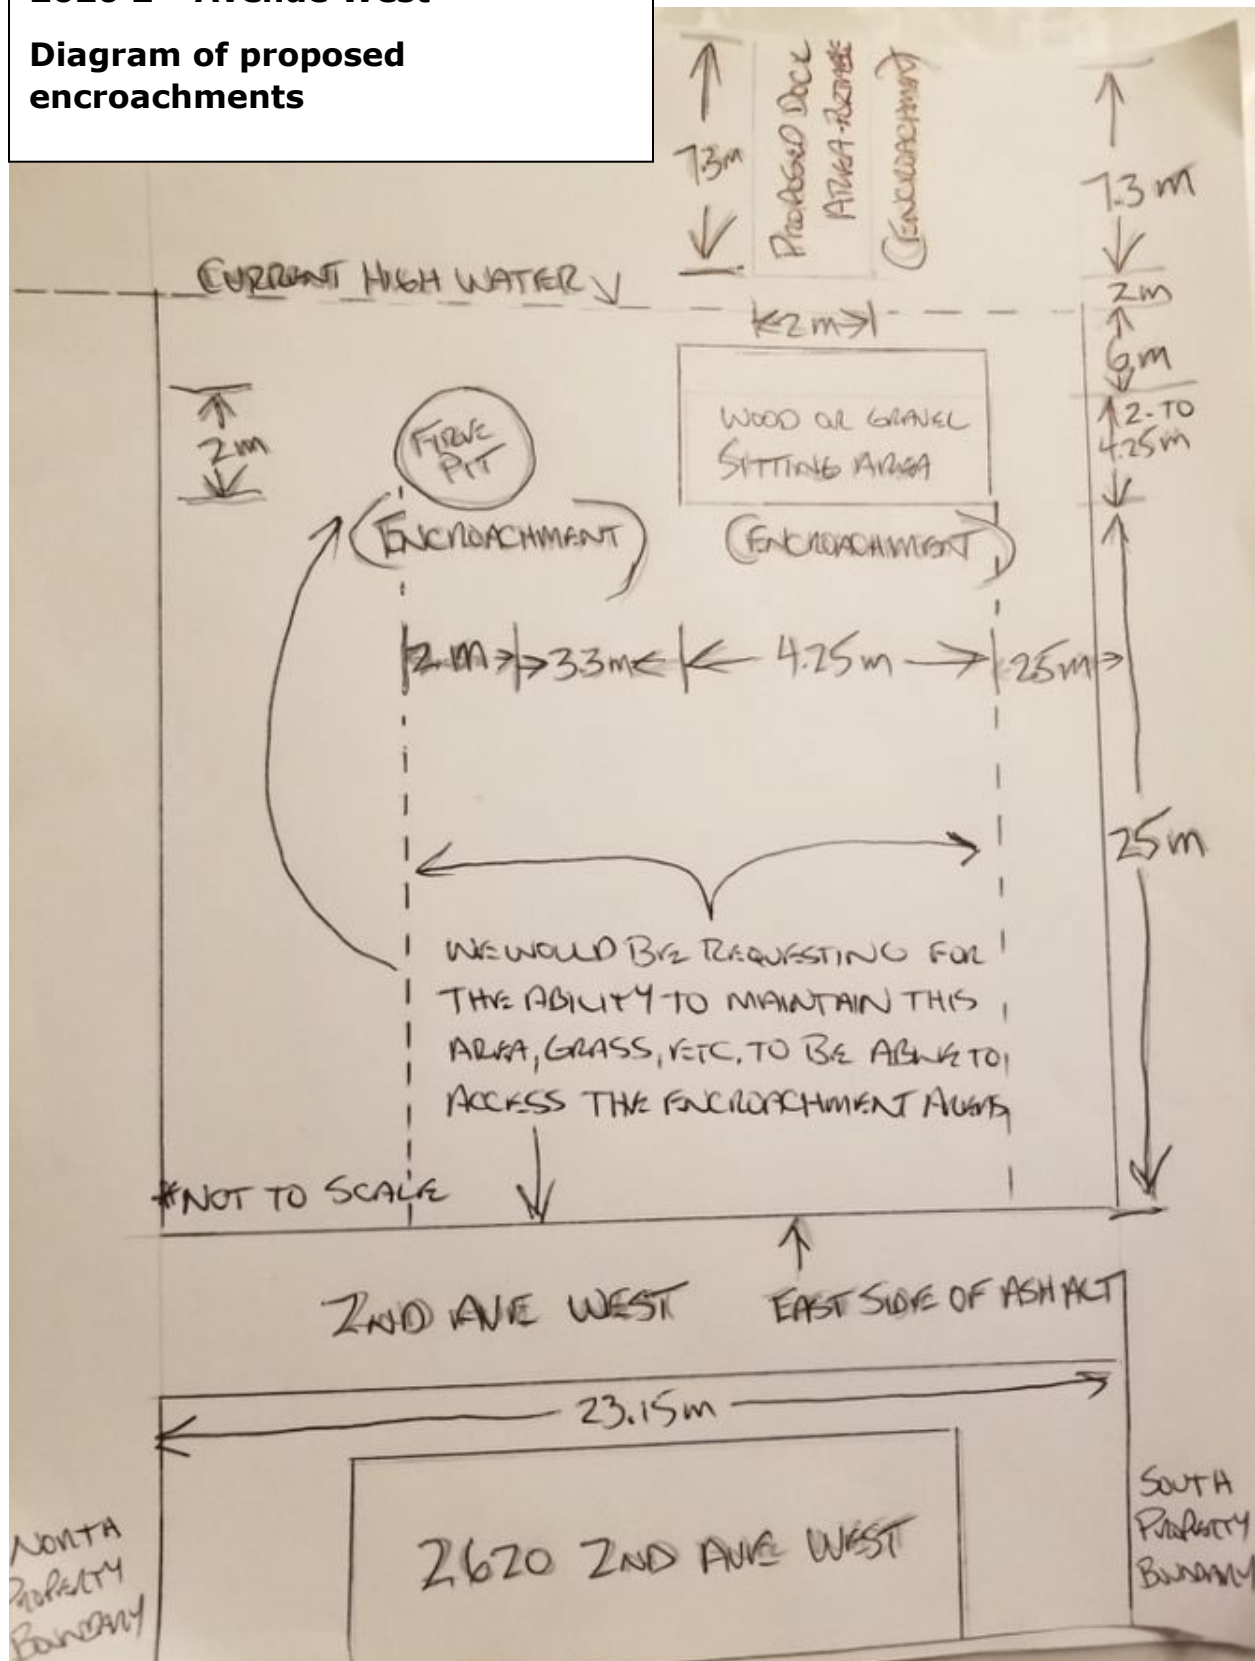 Diagram of proposed
encroachments
7.3m
PROPOSED DOCK
AREA-PORTABLE
(ENCROACHMENT)
7.3m
CURRENT HIGH WATER
2m
2m
6m
2m
FIRE
PIT
WOOD OR GRAVEL
SITTING AREA
2-TO
4.25m
(ENCROACHMENT)
(ENCROACHMENT)
2m
3.3m
4.25m
2.5m
25m
WE WOULD BE REQUESTING FOR
THE ABILITY TO MAINTAIN THIS
AREA, GRASS, ETC. TO BE ABLE TO
ACCESS THE ENCROACHMENT AREAS
*NOT TO SCALE
2ND AVE WEST
EAST SIDE OF ASHALT
23.15m
2620 2ND AVE WEST
NORTH
PROPERTY
BOUNDARY
SOUTH
PROPERTY
BOUNDARY